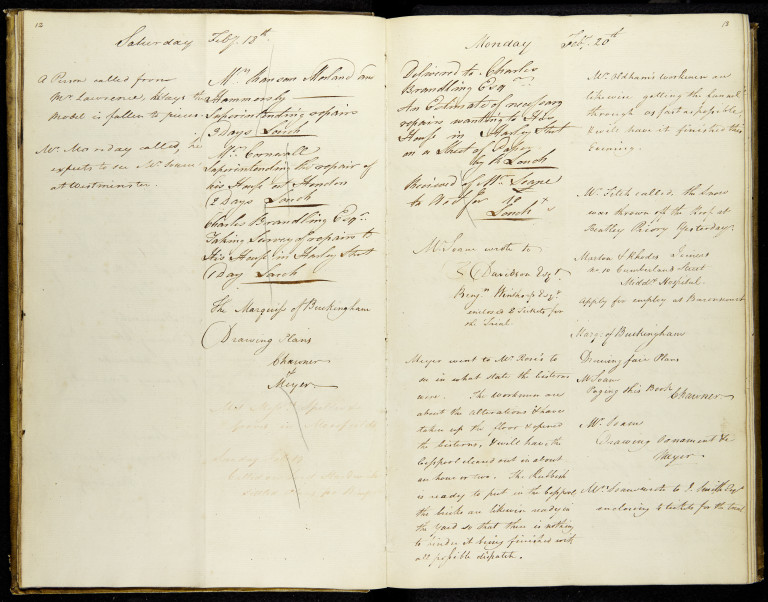 12
Saturday Feby. 18th.
A Person called from
Mr. Lawrence, & says the
Model is fallen to pieces
Mr. Monday called, he
expects to see Mr. Soane
at Westminster.
Ransom Morland and
Hammersly
Superintending repairs
3 Days Lorich
Mrs. Cornwall
Superintending the repair of
his House at Hendon
(2 Days Lorich
Charles Brandling Esqr.
Taking Survey of repairs to
His House in Harley Street
(1 Day Lorich
The Marquis of Buckingham
(Drawing Plans
Chawner
Meyer
13
Monday Feby. 20th
Delivered to Charles
Brandling Esqr
An Estimate of necessary
repairs wanting to His
House in Harley Street
on a Sheet of Paper
by R Lorich
Received of Mr. Soane
Lorich
Mr. Soane wrote to
Davidson Esqr.
Benjn. Winthrop Esqr.
enclosed 2 Tickets for
the Trial
Meyer went to Mr. Rose's to
see in what state the cisterns
were. The workmen are
about the alterations & have
taken up the floor & opened
the cisterns, & will have the
Cesspool cleaned out in about
an hour or two. The Rubbish
is ready to put in the Cesspool,
the bricks are likewise ready in
the yard so that there is nothing
to hinder it being finished with
all possible dispatch.
Mr. Oldham's workmen are
likewise getting the funnel
through as fast as possible,
& will have it finished this
Evening.
Mr. Fitch called, the Lead
was thrown off the Roof at
Bentley Priory Yesterday.
Marton & Rhodes Joiners
at 10 Cumberland Street
Middx. Hospital.
Apply for employ at Buscomcourt
Marq. of Buckingham
Drawing fair Plans
Mr. Soane
Paging this Book
Chawner
Mr. Soane
Drawing Ornament &c
Meyer
Mr. Soane wrote to J. Smith Esqr
enclosing 2 tickets for the trial